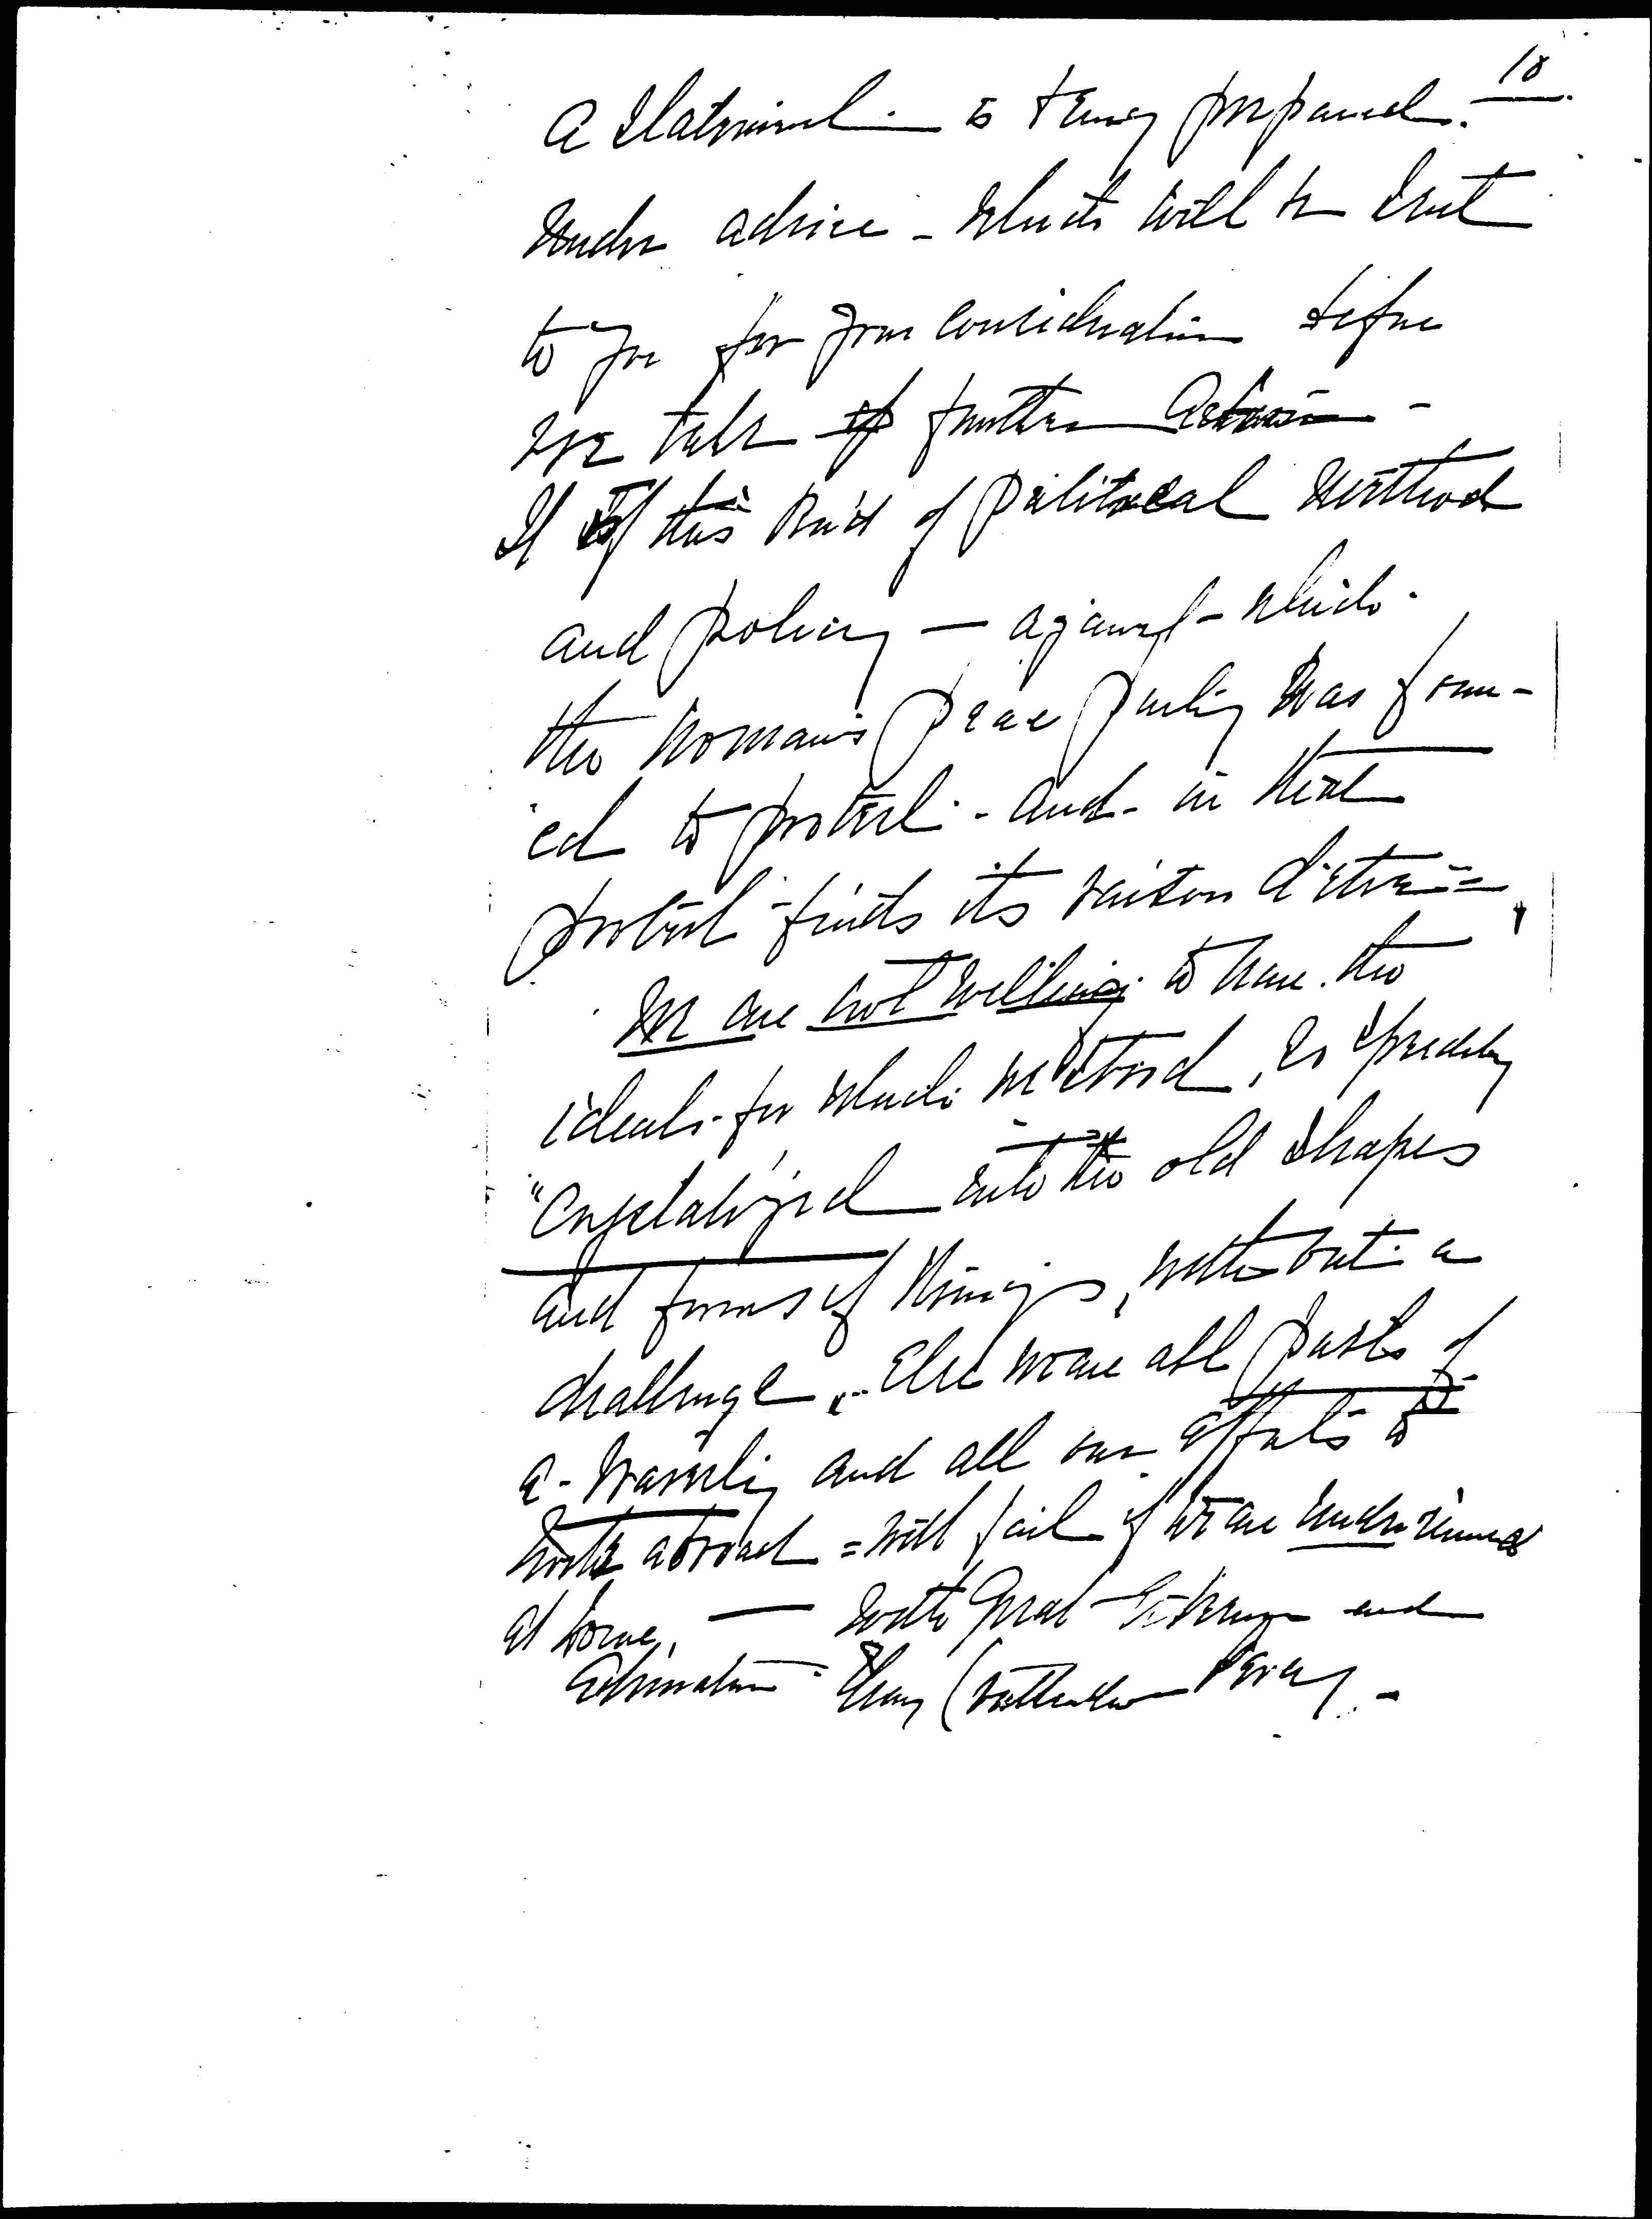 18
A Statement is being prepared.
under advice - which will be sent
to you for your consideration before
we take further Action -
It is this kind of political method
and policy - against which
the Woman's Peace Party was form-
ed to protest - and in that
protest finds its raison d'etre =
We are not willing to have the
ideals for which we stood, so speedily
"Crystalized into the old shapes
and forms of things, without a
challenge. Else we are all parts of
a - and all our efforts to
work abroad = will fail if we are undermined
at home, — With great esteem and